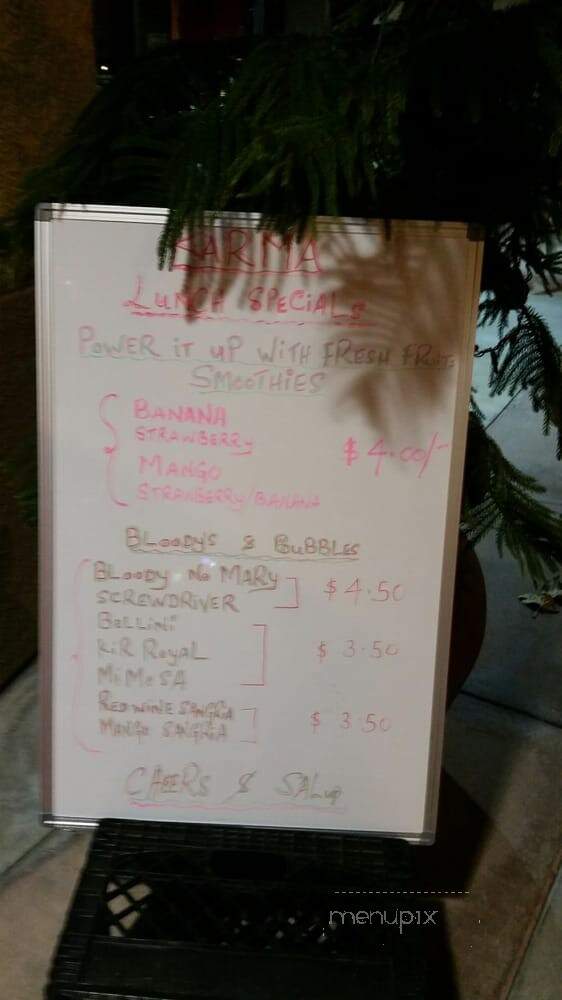 KARMA
LUNCH SPECIALS
POWER IT UP WITH FRESH FRUITS
SMOOTHIES
BANANA
STRAWBERRY
MANGO
STRAWBERRY/BANANA
$4.00/-
BLOODY'S & BUBBLES
BLOODY No MARY
SCREWDRIVER
$4.50
BELLINI
KIR ROYAL
MiMoSA
$ 3.50
RED WINE SANGRIA
MANGO SANGRIA
$ 3.50
CHEERS & SALUD
menupix